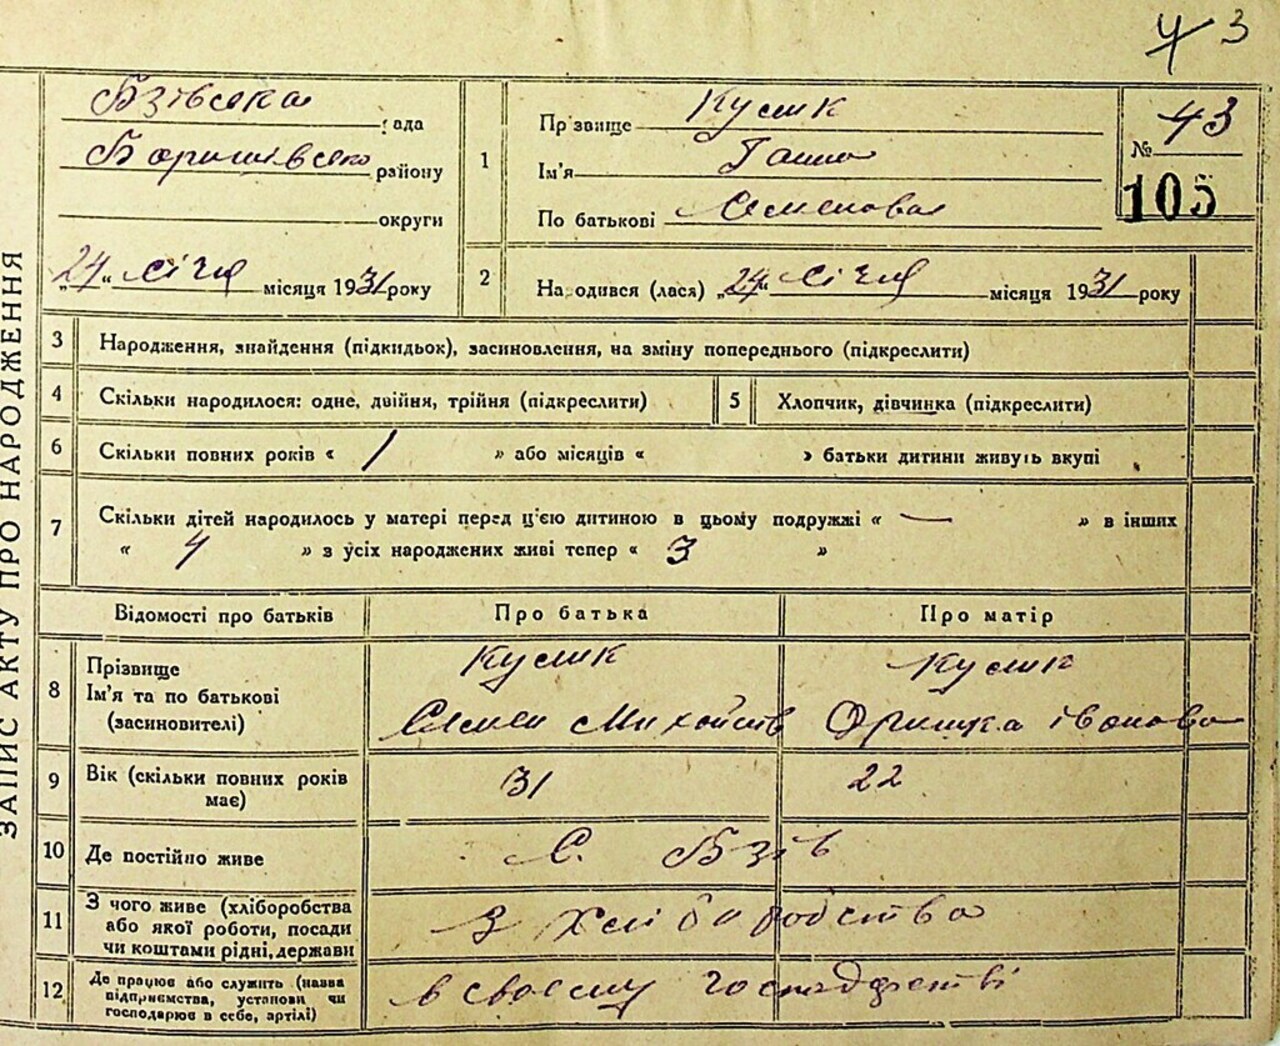 4 3
ЗАПИС АКТУ ПРО НАРОДЖЕННЯ
Бзівська рада
Баришівсько району
округи
„24“ січня місяця 1931 року
1
Прізвище Кусик
Ім'я Ганна
По батькові Семенова
№ 43
105
2
Народився (лася) „24“ січня місяця 1931 року
3 Народження, знайдення (підкидьок), засиновлення, на зміну попереднього (підкреслити)
4 Скільки народилося: одне, двійня, трійня (підкреслити)
5 Хлопчик, дівчинка (підкреслити)
6 Скільки повних років « 1 » або місяців « » батьки дитини живуть вкупі
7 Скільки дітей народилось у матері перед ц'єю дитиною в цьому подружжі « — » в інших
« 4 » з усіх народжених живі тепер « 3 »
Відомості про батьків Про батька Про матір
8 Прізвище
Ім'я та по батькові
(засиновителі)
Кусик
Семен
Кусик
Оришка Іванова
9 Вік (скільки повних років
має)
31 22
10 Де постійно живе с. Бзів
11 З чого живе (хліборобства
або якої роботи, посади
чи коштами рідні, держави
З хліборобства
12 Де працює або служить (назва
підприємства, установи чи
господарює в себе, артілі)
в своєму